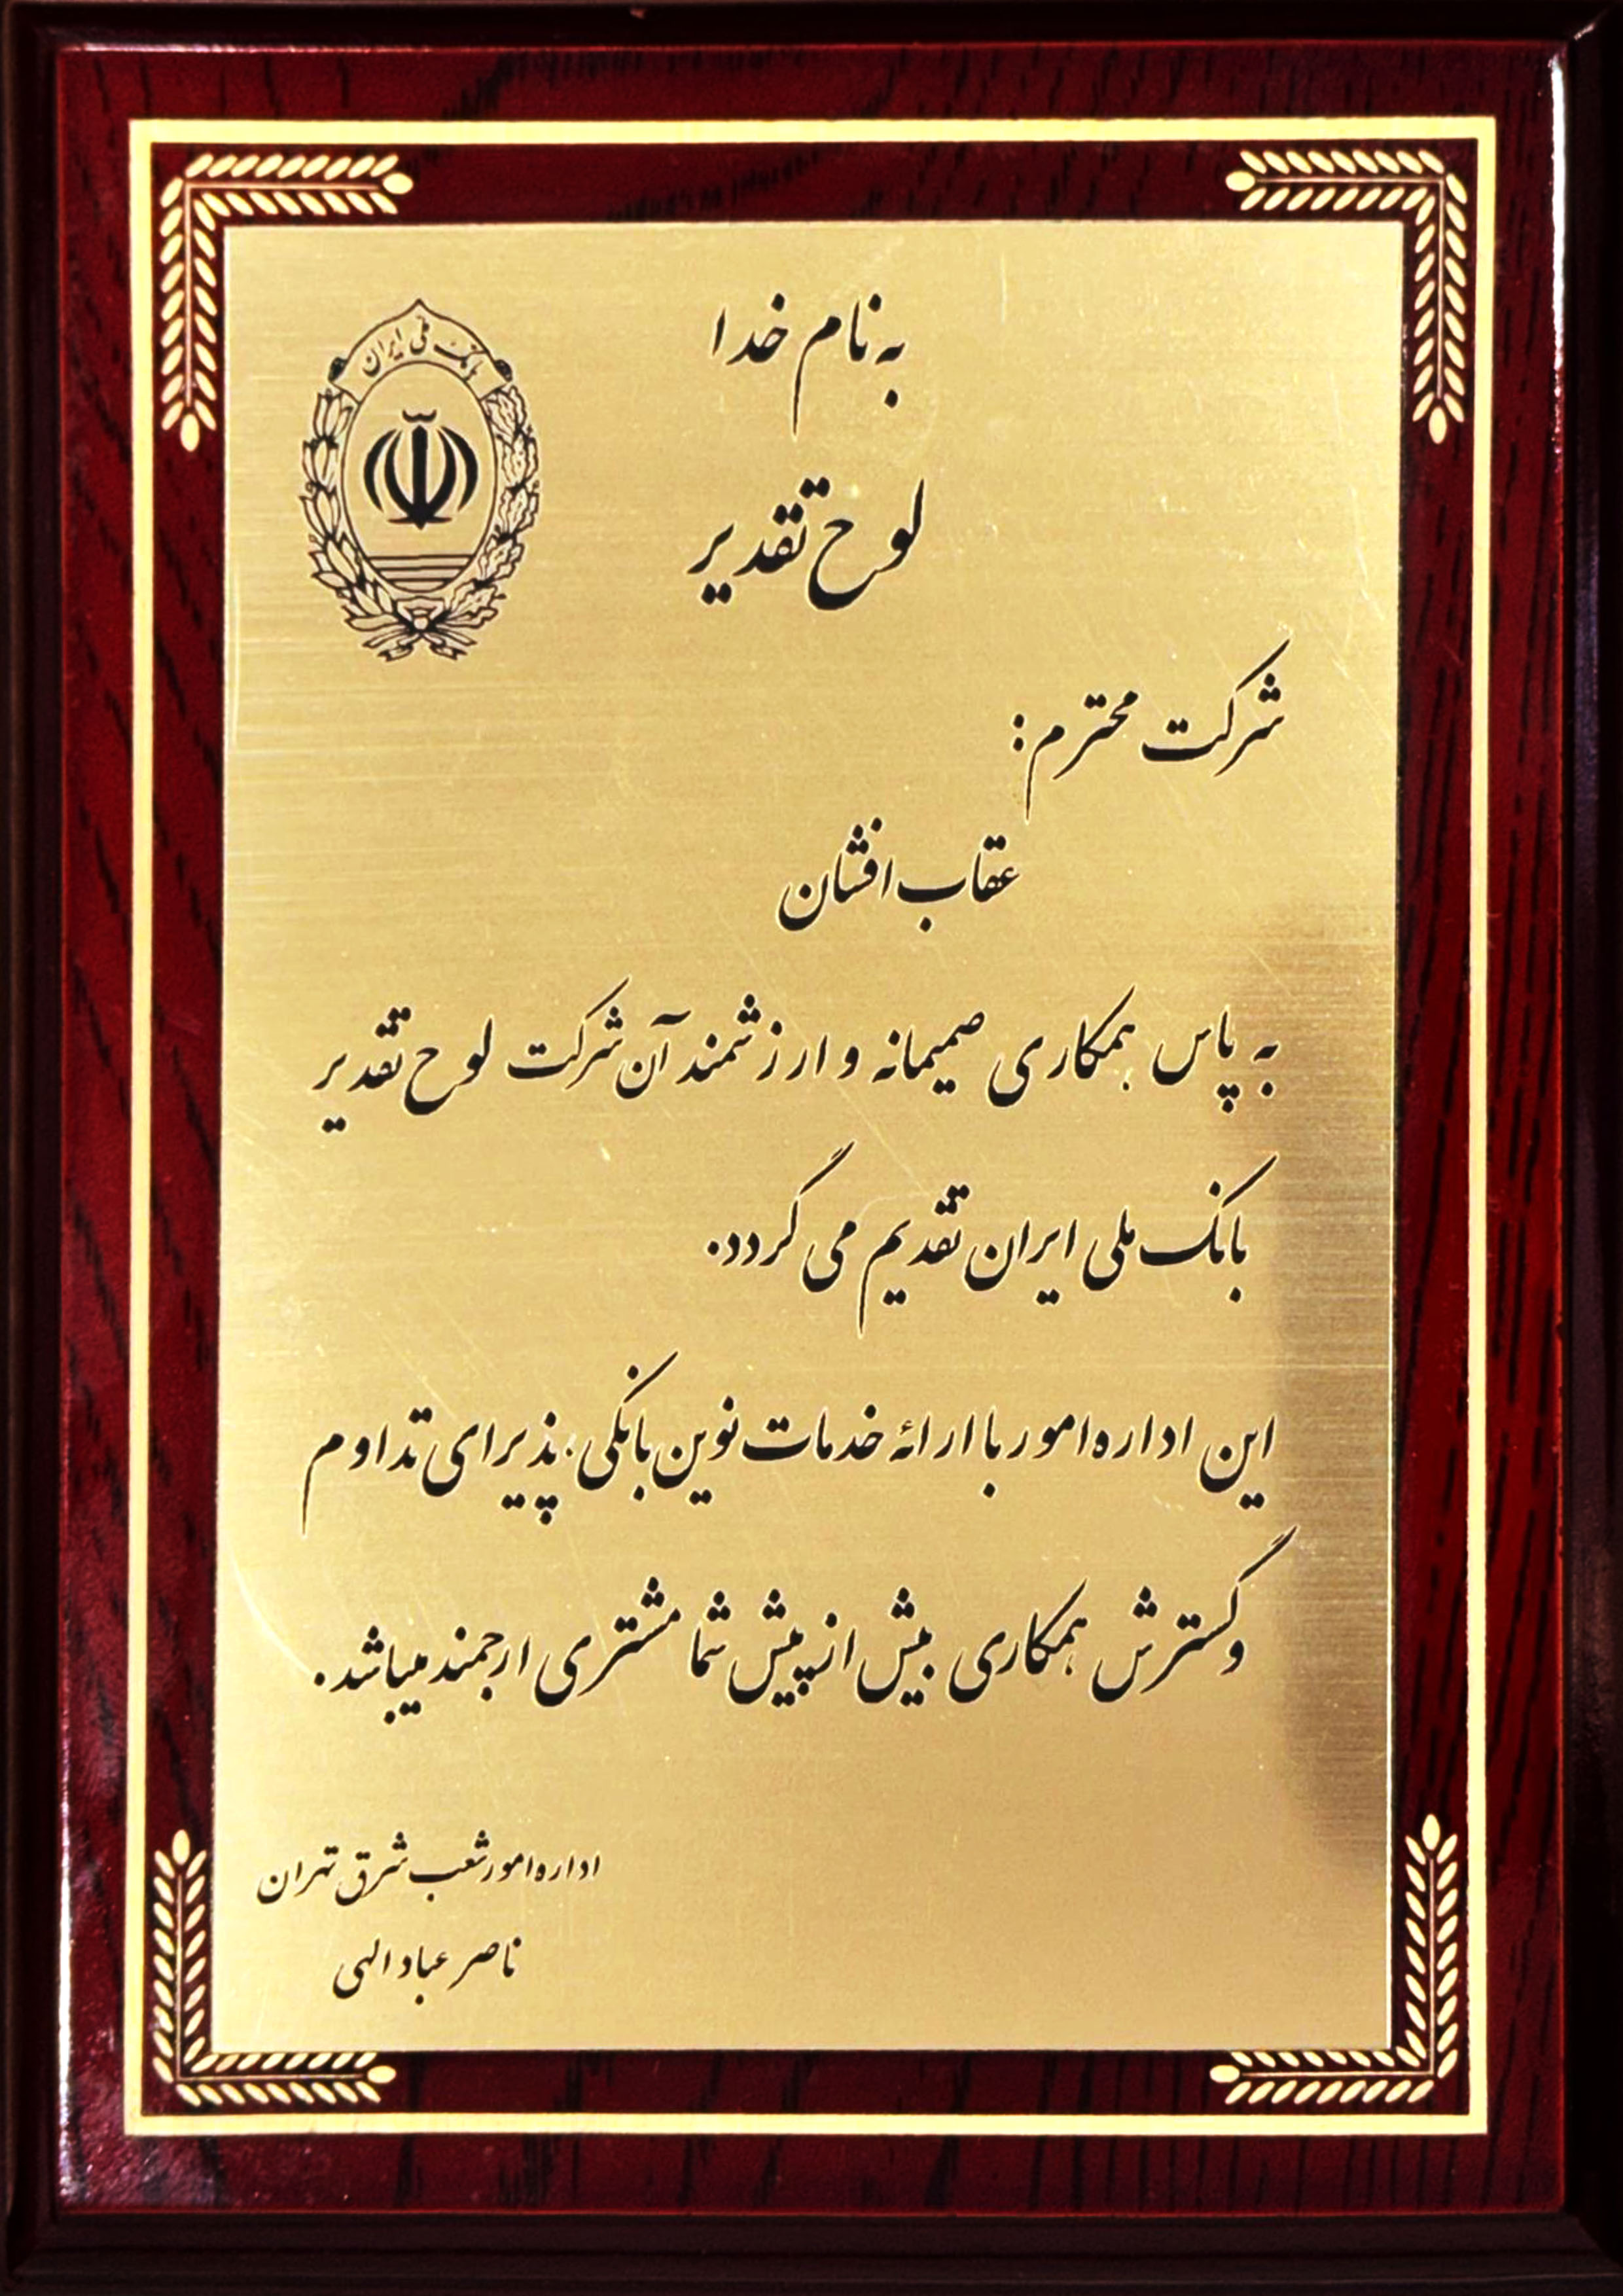 بانک ملی ایران
به نام خدا
لوح تقدیر
شرکت محترم :
عقاب افشان
به پاس همکاری صمیمانه و ارزشمند آن شرکت لوح تقدیر
بانک ملی ایران تقدیم می گردد.
این اداره امور با ارائه خدمات نوین بانکی، پذیرای تداوم
و گسترش همکاری بیش از پیش شما مشتری ارجمند میباشد.
اداره امور شعب شرق تهران
ناصر عباد الهی